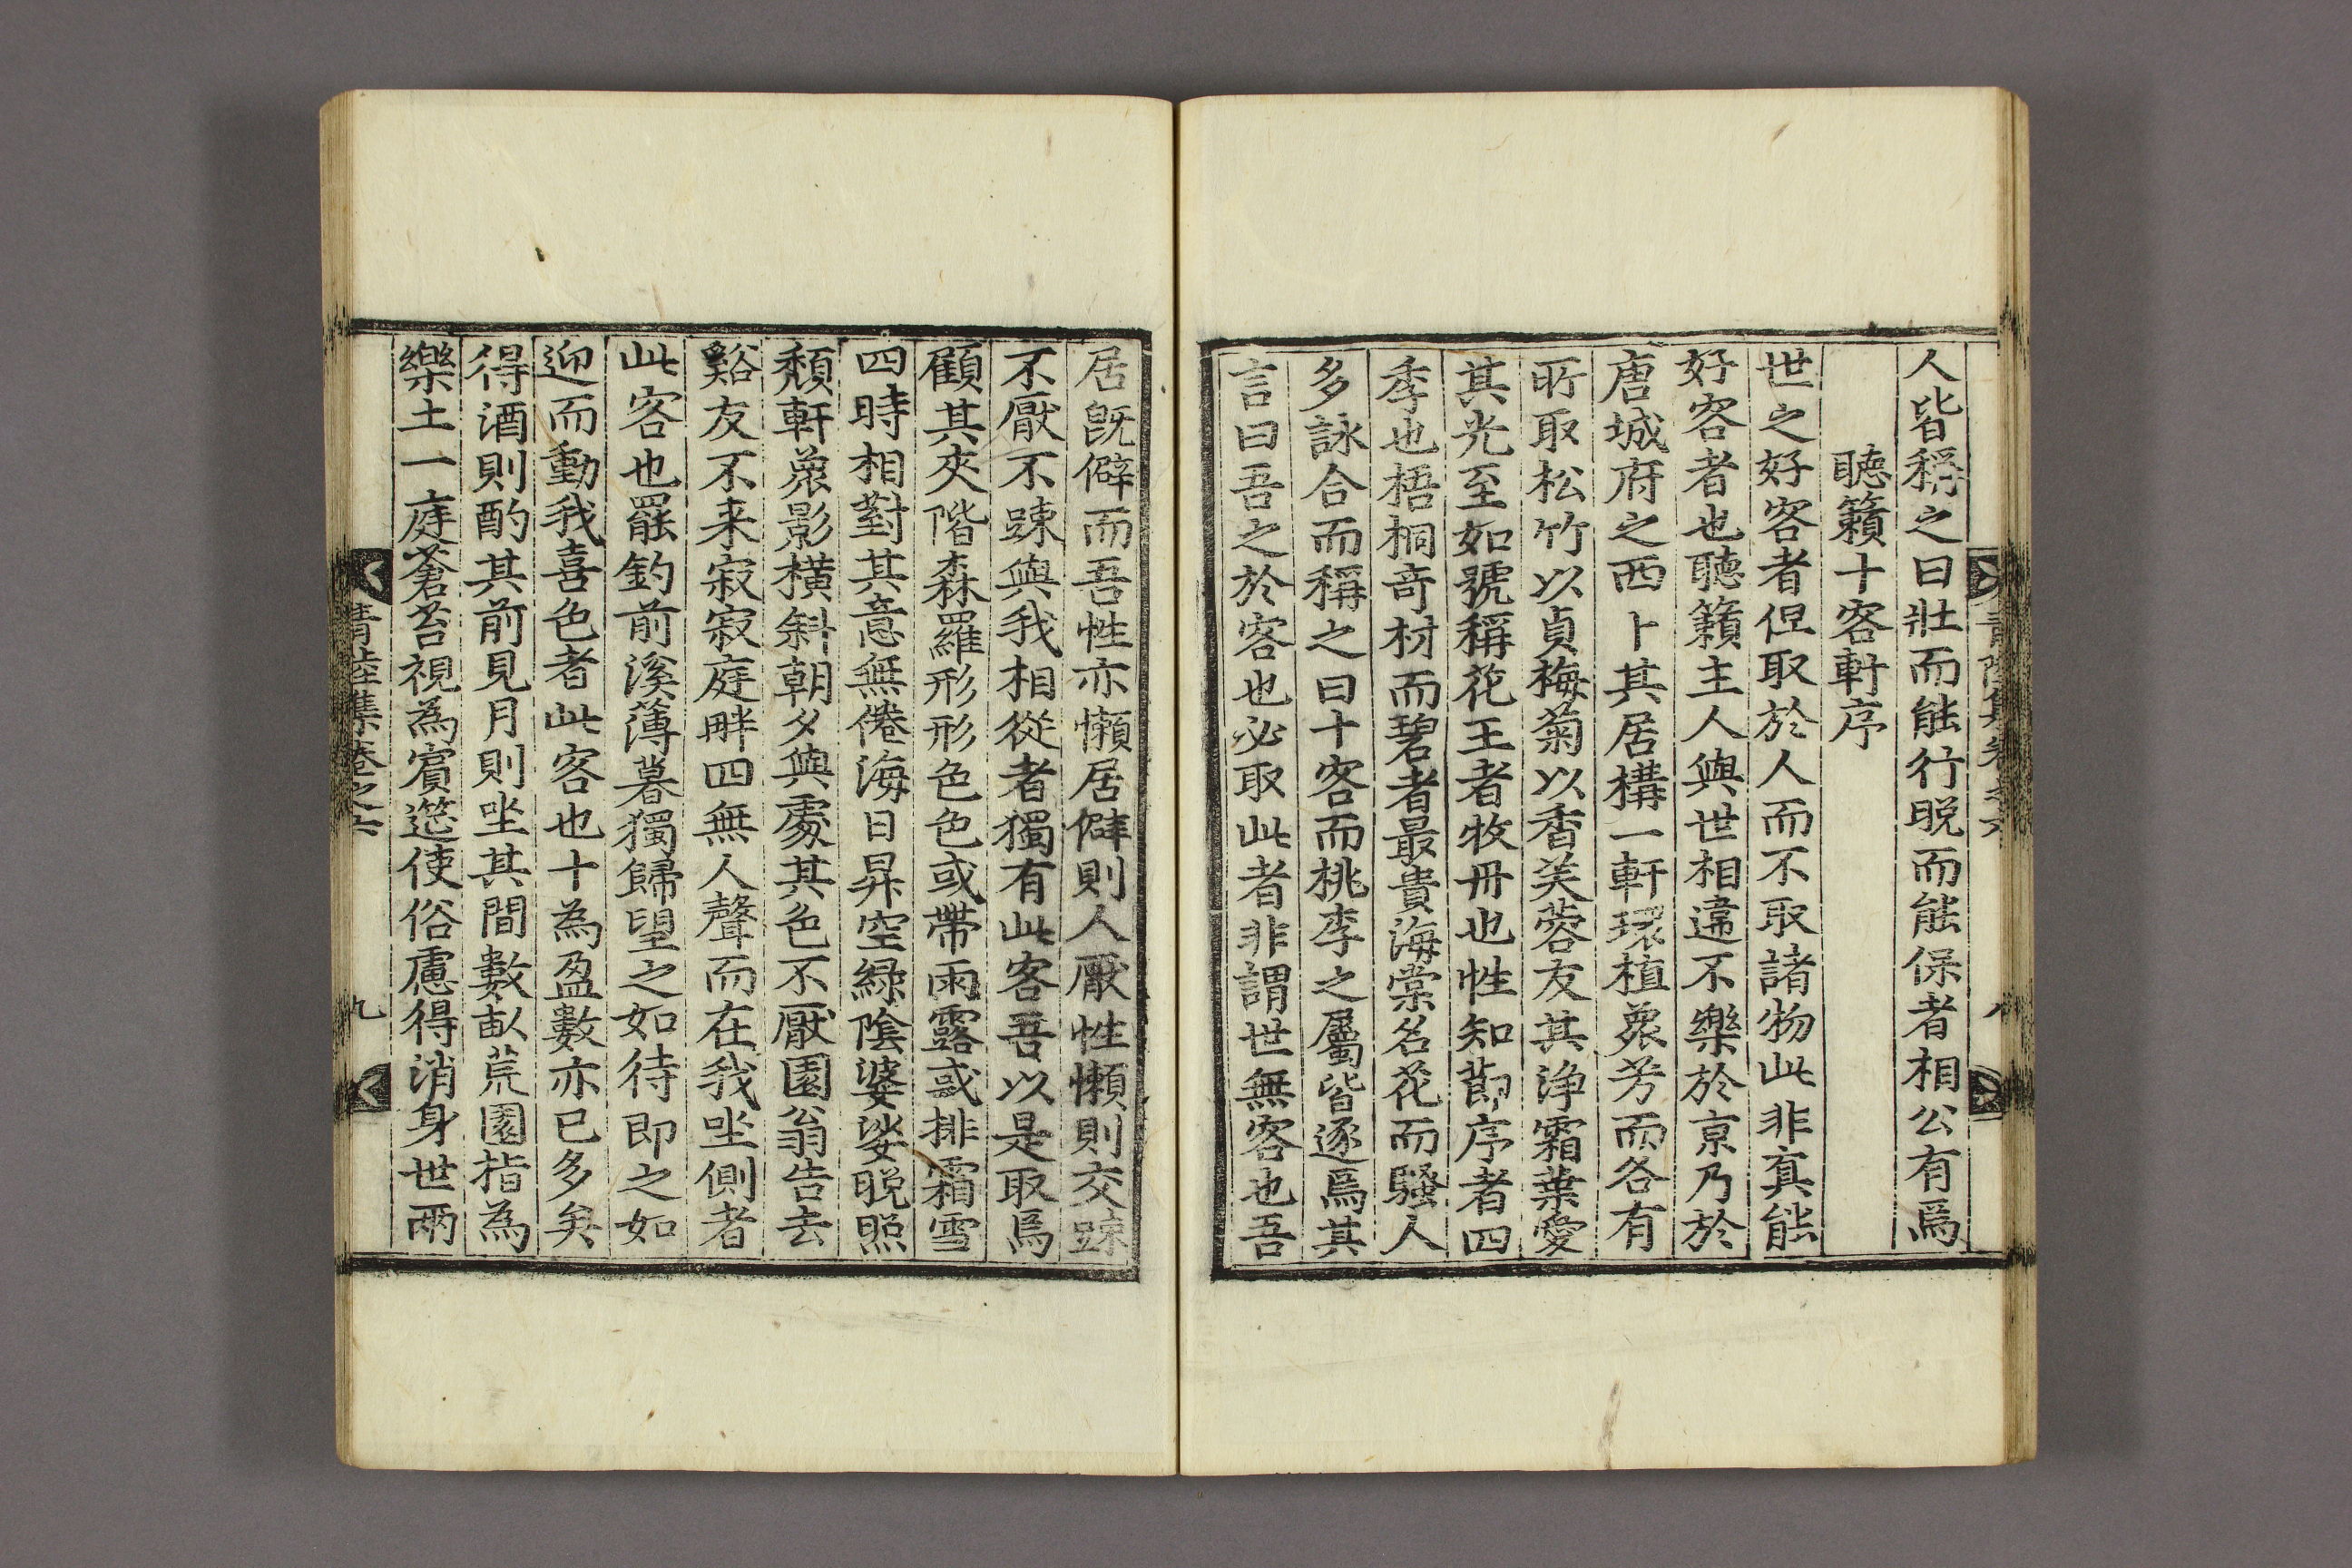 人皆稱之曰壯而能行晚而能保者相公有焉
聽籟十客軒序
世之好客者但取於人而不取諸物此非真能
好客者也聽籟主人與世相違不樂於京乃於
唐城府之西卜其居構一軒環植衆芳而各有
所取松竹以貞梅菊以香芙蓉友其淨霜葉愛
其光至如號稱花王者牧丹也性知節序者四
季也梧桐奇材而碧者最貴海棠名花而騷人
多詠合而稱之曰十客而桃李之屬皆逐焉其
言曰吾之於客也必取此者非謂世無客也吾
居旣僻而吾性亦懶居僻則人厭性懶則交踈
不厭不踈與我相從者獨有此客吾以是取焉
顧其夾階森羅形形色色或帶雨露或排霜雪
四時相對其意無倦海日昇空綠陰婆娑晚照
頹軒衆影橫斜朝夕與處其色不厭園翁告去
谿友不来寂寂庭畔四無人聲而在我坐側者
此客也罷釣前溪薄暮獨歸望之如待即之如
迎而動我喜色者此客也十為盈數亦已多矣
得酒則酌其前見月則坐其間數畝荒園指為
樂土一庭蒼苔視為賓筵使俗慮得消身世兩
青陸集卷之六
九